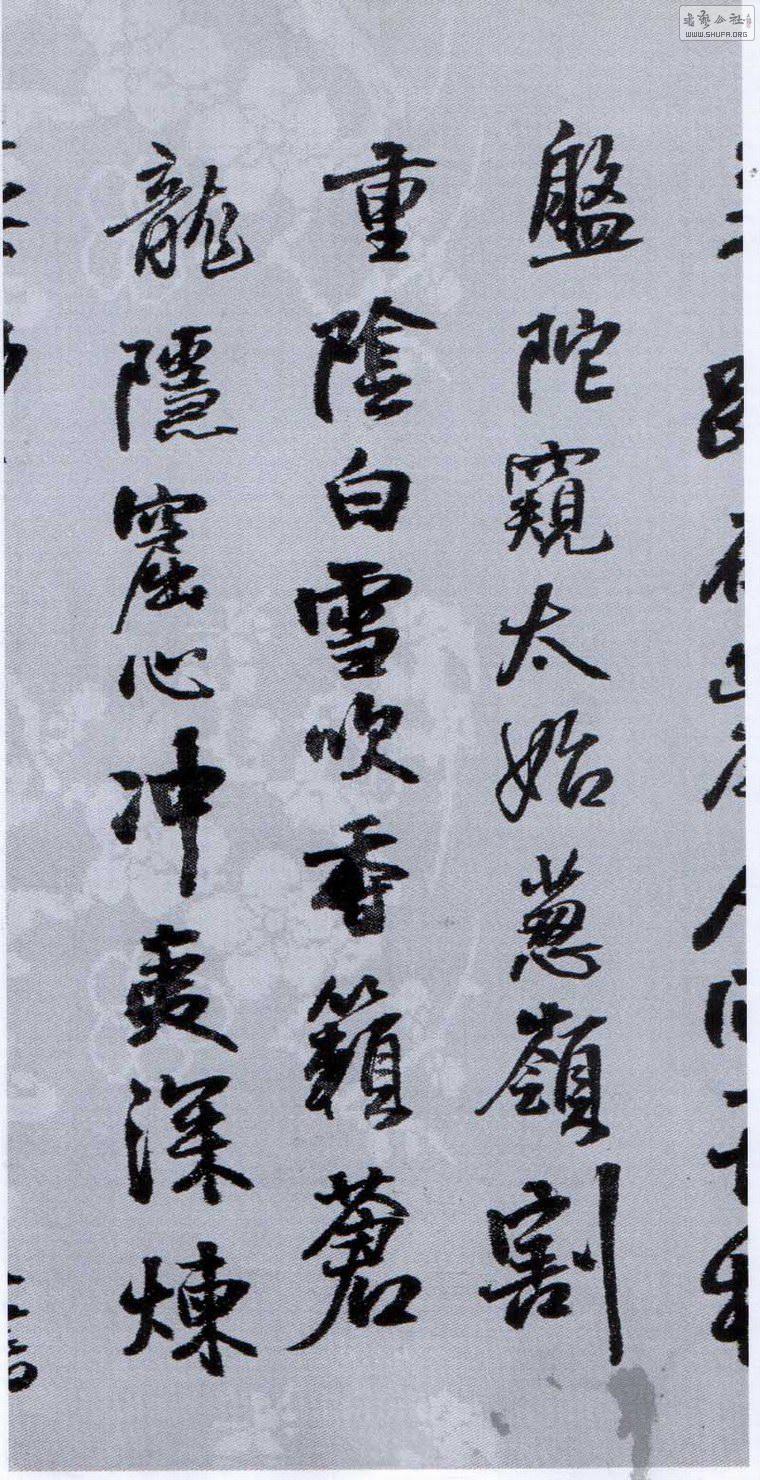 盤陀窺太始蔥嶺割
重陰白雪吹香籟蒼
龍隱窟心冲奧深煉
WWW.SHUFA.ORG